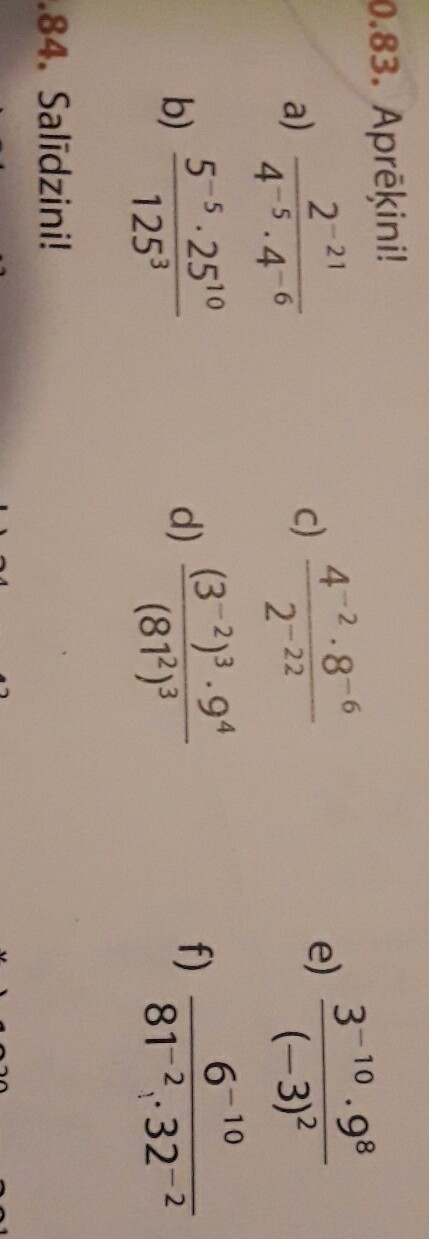 0.83. Aprēķini!
a) 2⁻²¹ / (4⁻⁵ · 4⁻⁶)
c) (4⁻² · 8⁻⁶) / 2⁻²²
e) (3⁻¹⁰ · 9⁸) / (−3)²
b) (5⁻⁵ · 25¹⁰) / 125³
d) ((3⁻²)³ · 9⁴) / (81²)³
f) 6⁻¹⁰ / (81⁻² · 32⁻²)
.84. Salīdzini!